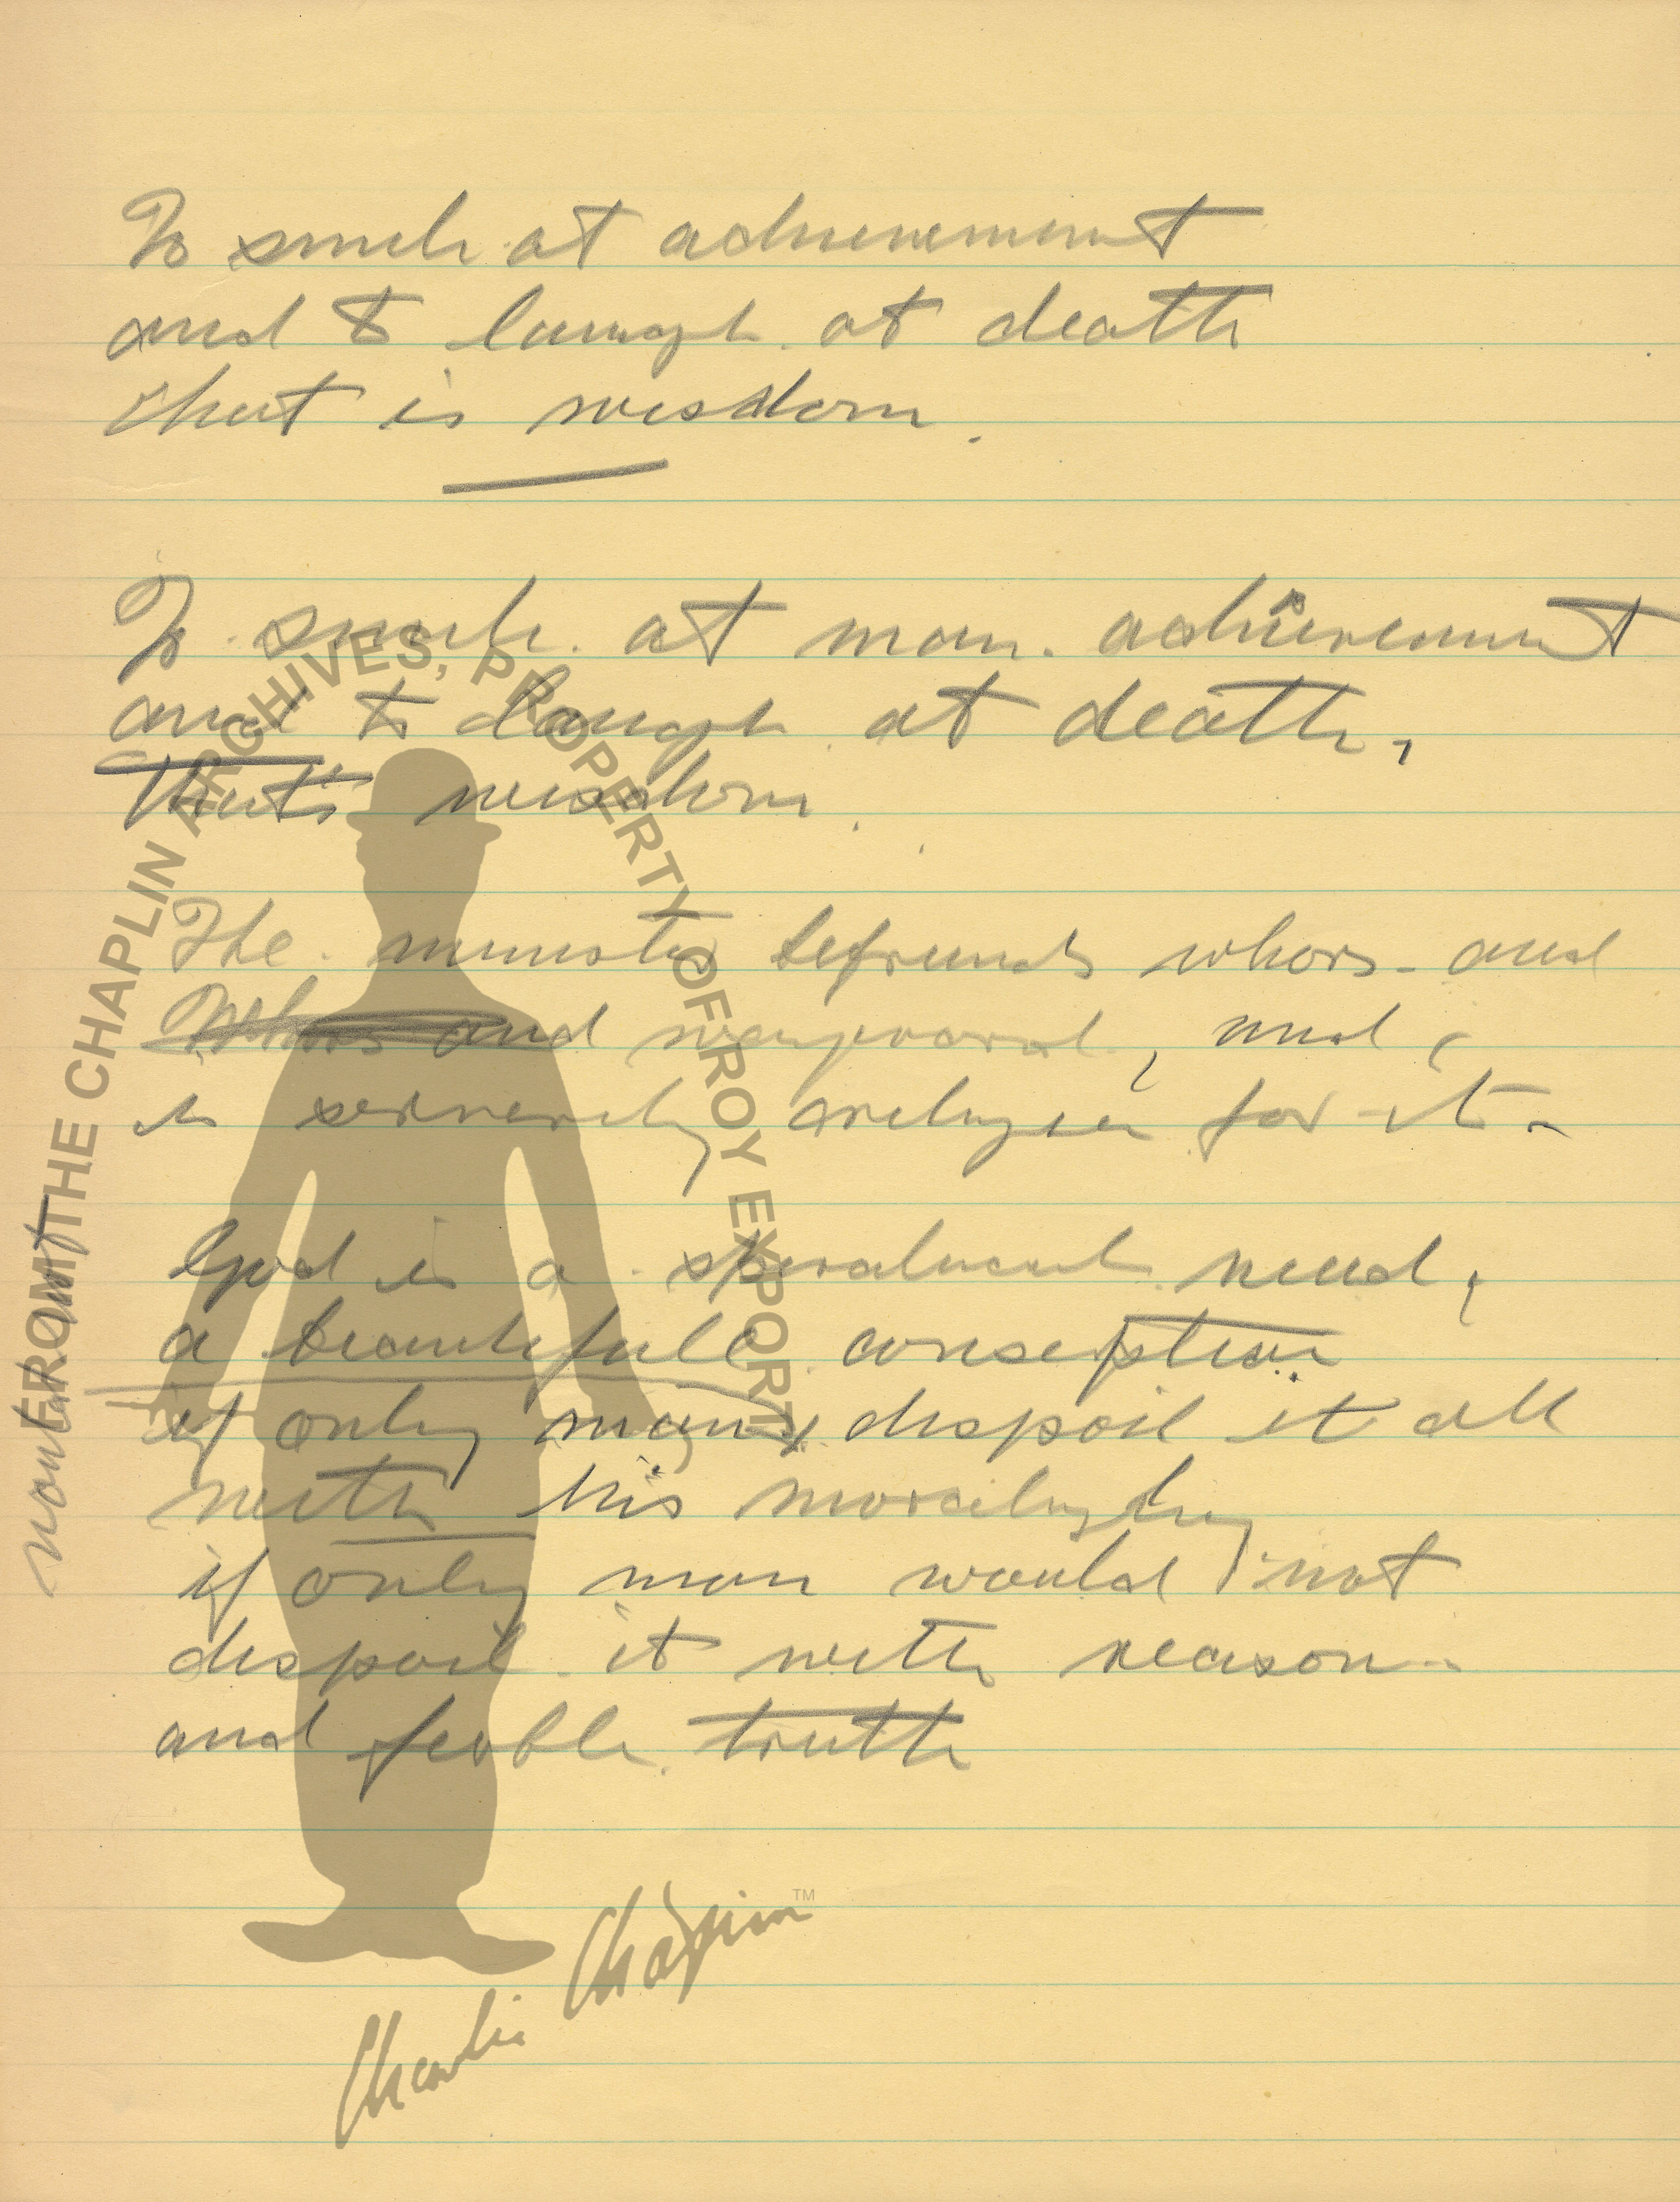 To smile at achievement
and to laugh at death
that is wisdom.
To smile at man achievement
and to laugh at death,
that's wisdom.
The minister befriends whors and
Whors and wayward, and
is severely for it.
God is a need,
a beautifull conseption
if only man despoil it all
with his
if only man would not
despoil it with reason
and feoble truth
FROM THE CHAPLIN ARCHIVES, PROPERTY OF ROY EXPORT
Charlie Chaplin TM